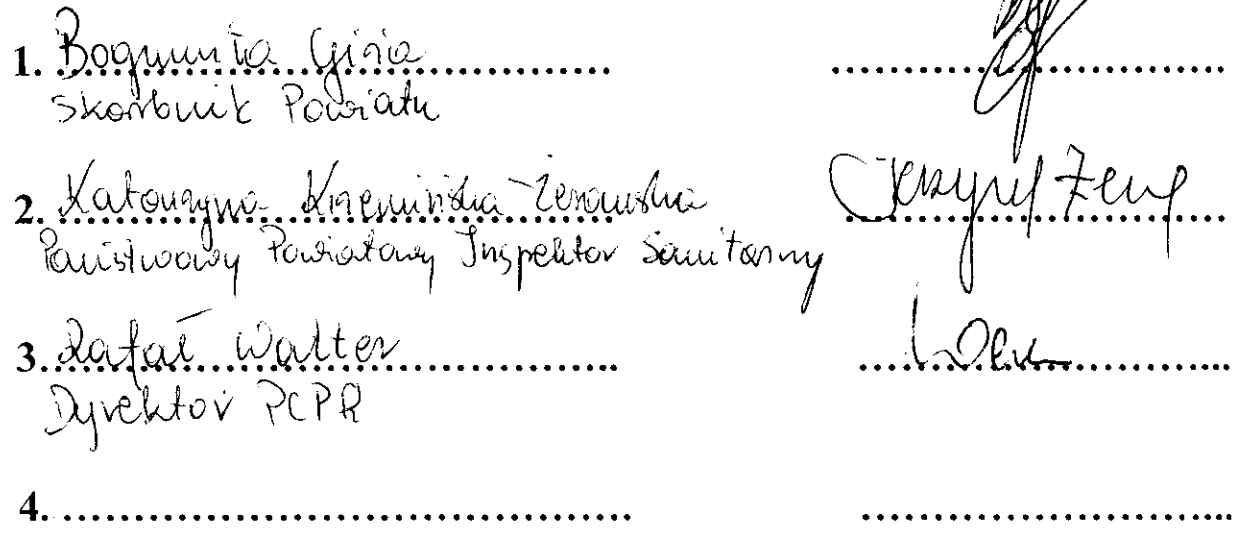 1. Bogumiła Gizia
Skarbnik Powiatu
2. Katarzyna Krzemińska-
Państwowy Powiatowy Inspektor Sanitarny
3. Rafał Walter
Dyrektor PCPR
4.